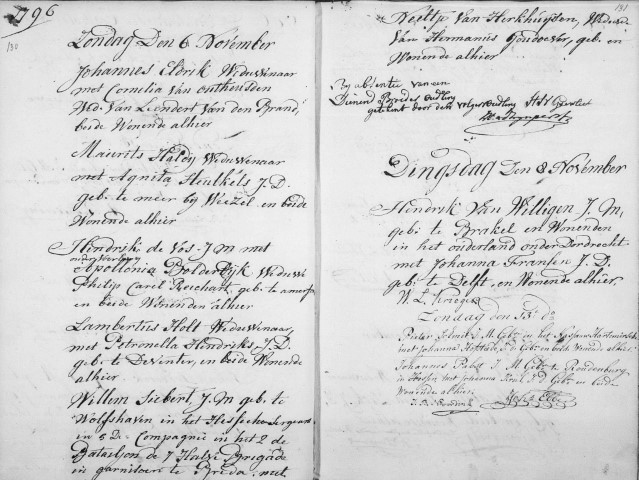 1796
130
Zondag Den 6 November
Johannes Eldrik Weduwenaar
met Cornelia Van onthusden
Wed. Van Leendert Van den Brand,
beide Wonende alhier
Maurits Haldij Weduwenaar
met Agnita Heulkels J. D.
geb. te meer by Weezel en beide
Wonende alhier
Hindrik de Vos J m met
Apollonia Bolderdijk Weduwe
Philip Carel Reichart, geb. te
en beide Wonenden alhier
Lambertus Holt Weduwenaar,
met Petronella Hindriks J. D.
geb. te Deventer, en beide Wonende
alhier
Willem Siebert, J. m geb. te
Wolfshaven in het Hessische
en 5 De Compagnie in het 2 de
Batailjon de 7 Halve Brigade
in garnisoen te Breda met
131
Neeltje Van Herkhuijsen, Weduwe
Van Hermanus Goudoever, geb. en
Wonende alhier
By absentie van een
Dienend Broeder oudling
geteekent door den
Dingsdag Den 8 November
Hendrik Van Willigen J. m,
geb. te Brakel en Wonenden
in het onderland onder Dordrecht
met Johanna Fransen J. D.
geb. te Delft, en Wonende alhier.
W. L. Krieger
Zondag den 13 do
Pieter J. M. Geb. en het Nassauw
met Johanna J. d. Geb. en beide Wonende alhier.
Johannes J. M. Geb. te Rondenburg,
in Hessen met Johanna Krol J. d. Geb. en beide
Wonende alhier.